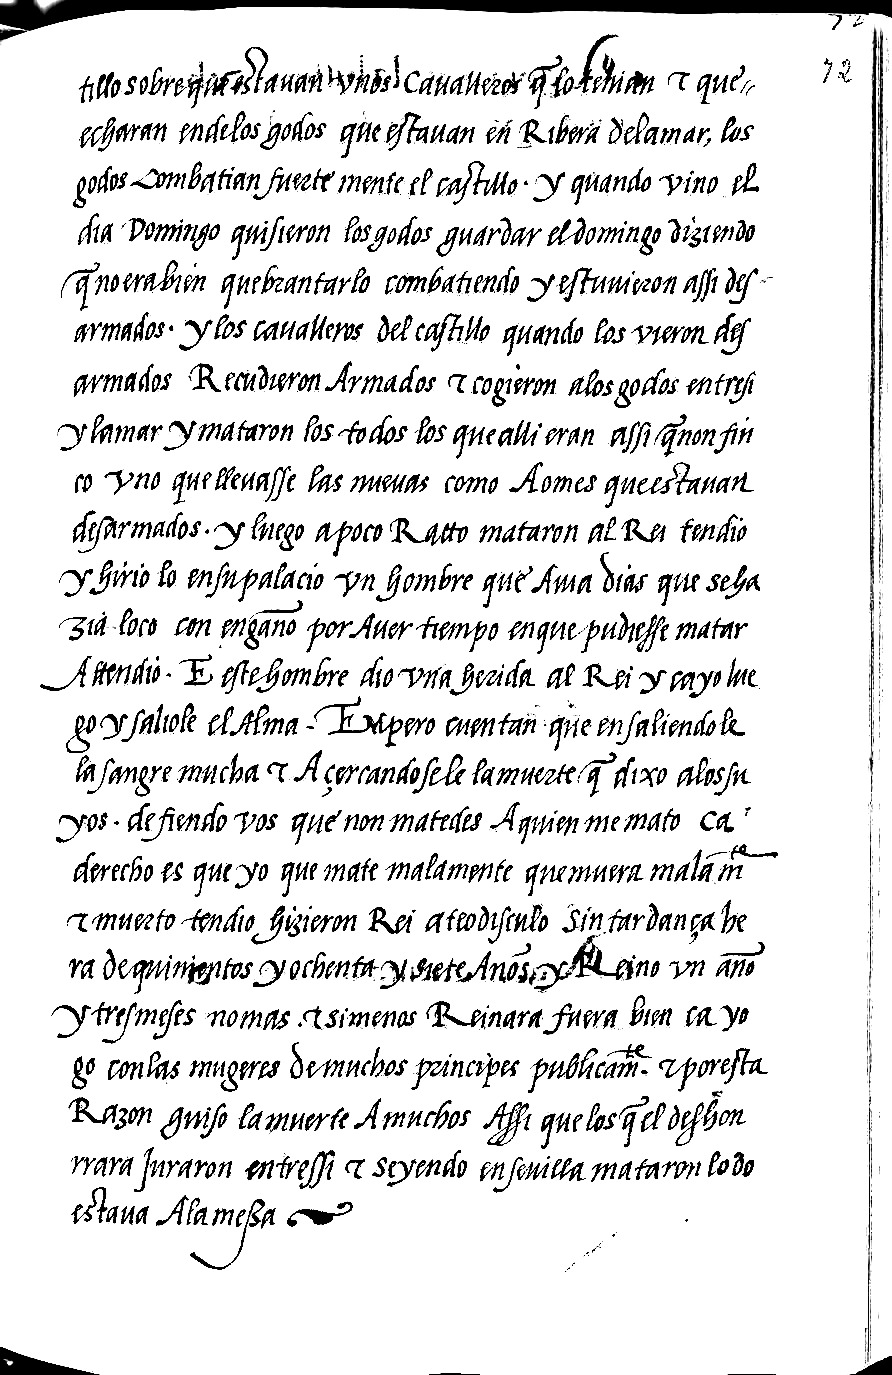 72
72
tillo sobre que estauan vnos Cavalleros q̃ lo tenian ⁊ que
echaran ende los godos que estauan en Ribera delamar, los
godos Combatian fuerte mente el castillo. y quando vino el
dia Domingo quisieron los godos guardar el domingo diziendo
q̃ no era bien quebrantarlo combatiendo y estuuieron assi des
armados. y los caualleros del castillo quando los vieron des
armados Recudieron Armados ⁊ cogieron alos godos entresi
y lamar y mataron los todos los que alli eran assi q̃ non fin
co vno que lleuasse las nueuas como Aomes que estauan
desarmados. y luego apoco Ratto mataron al Rei tendio
y hirio lo ensu palacio vn hombre que Auia dias que seha
zia loco con engaño por Auer tiempo enque pudiesse matar
Attendio. E este hombre dio vna herida al Rei y cayo lue
go y saliole el Alma. Empero cuentan que ensaliendole
la sangre mucha ⁊ Açercandosele la muerte q̃ dixo alos su
yos. defiendo vos que non matedes Aquien me mato ca
derecho es que yo que mate malamente que muera malam̃te
⁊ muerto tendio hizieron Rei ateodisculo Sin tardança he
ra de quinientos y ochenta y siete Años, y Reino vn año
y tres meses nomas. ⁊ si menos Reinara fuera bien ca yo
go conlas mugeres de muchos principes publicam̃te. ⁊ por esta
Razon guiso la muerte Amuchos Assi que los q̃ el deshon
rrara Juraron entressi ⁊ seyendo en seuilla mataron lo do
estaua Ala meßa